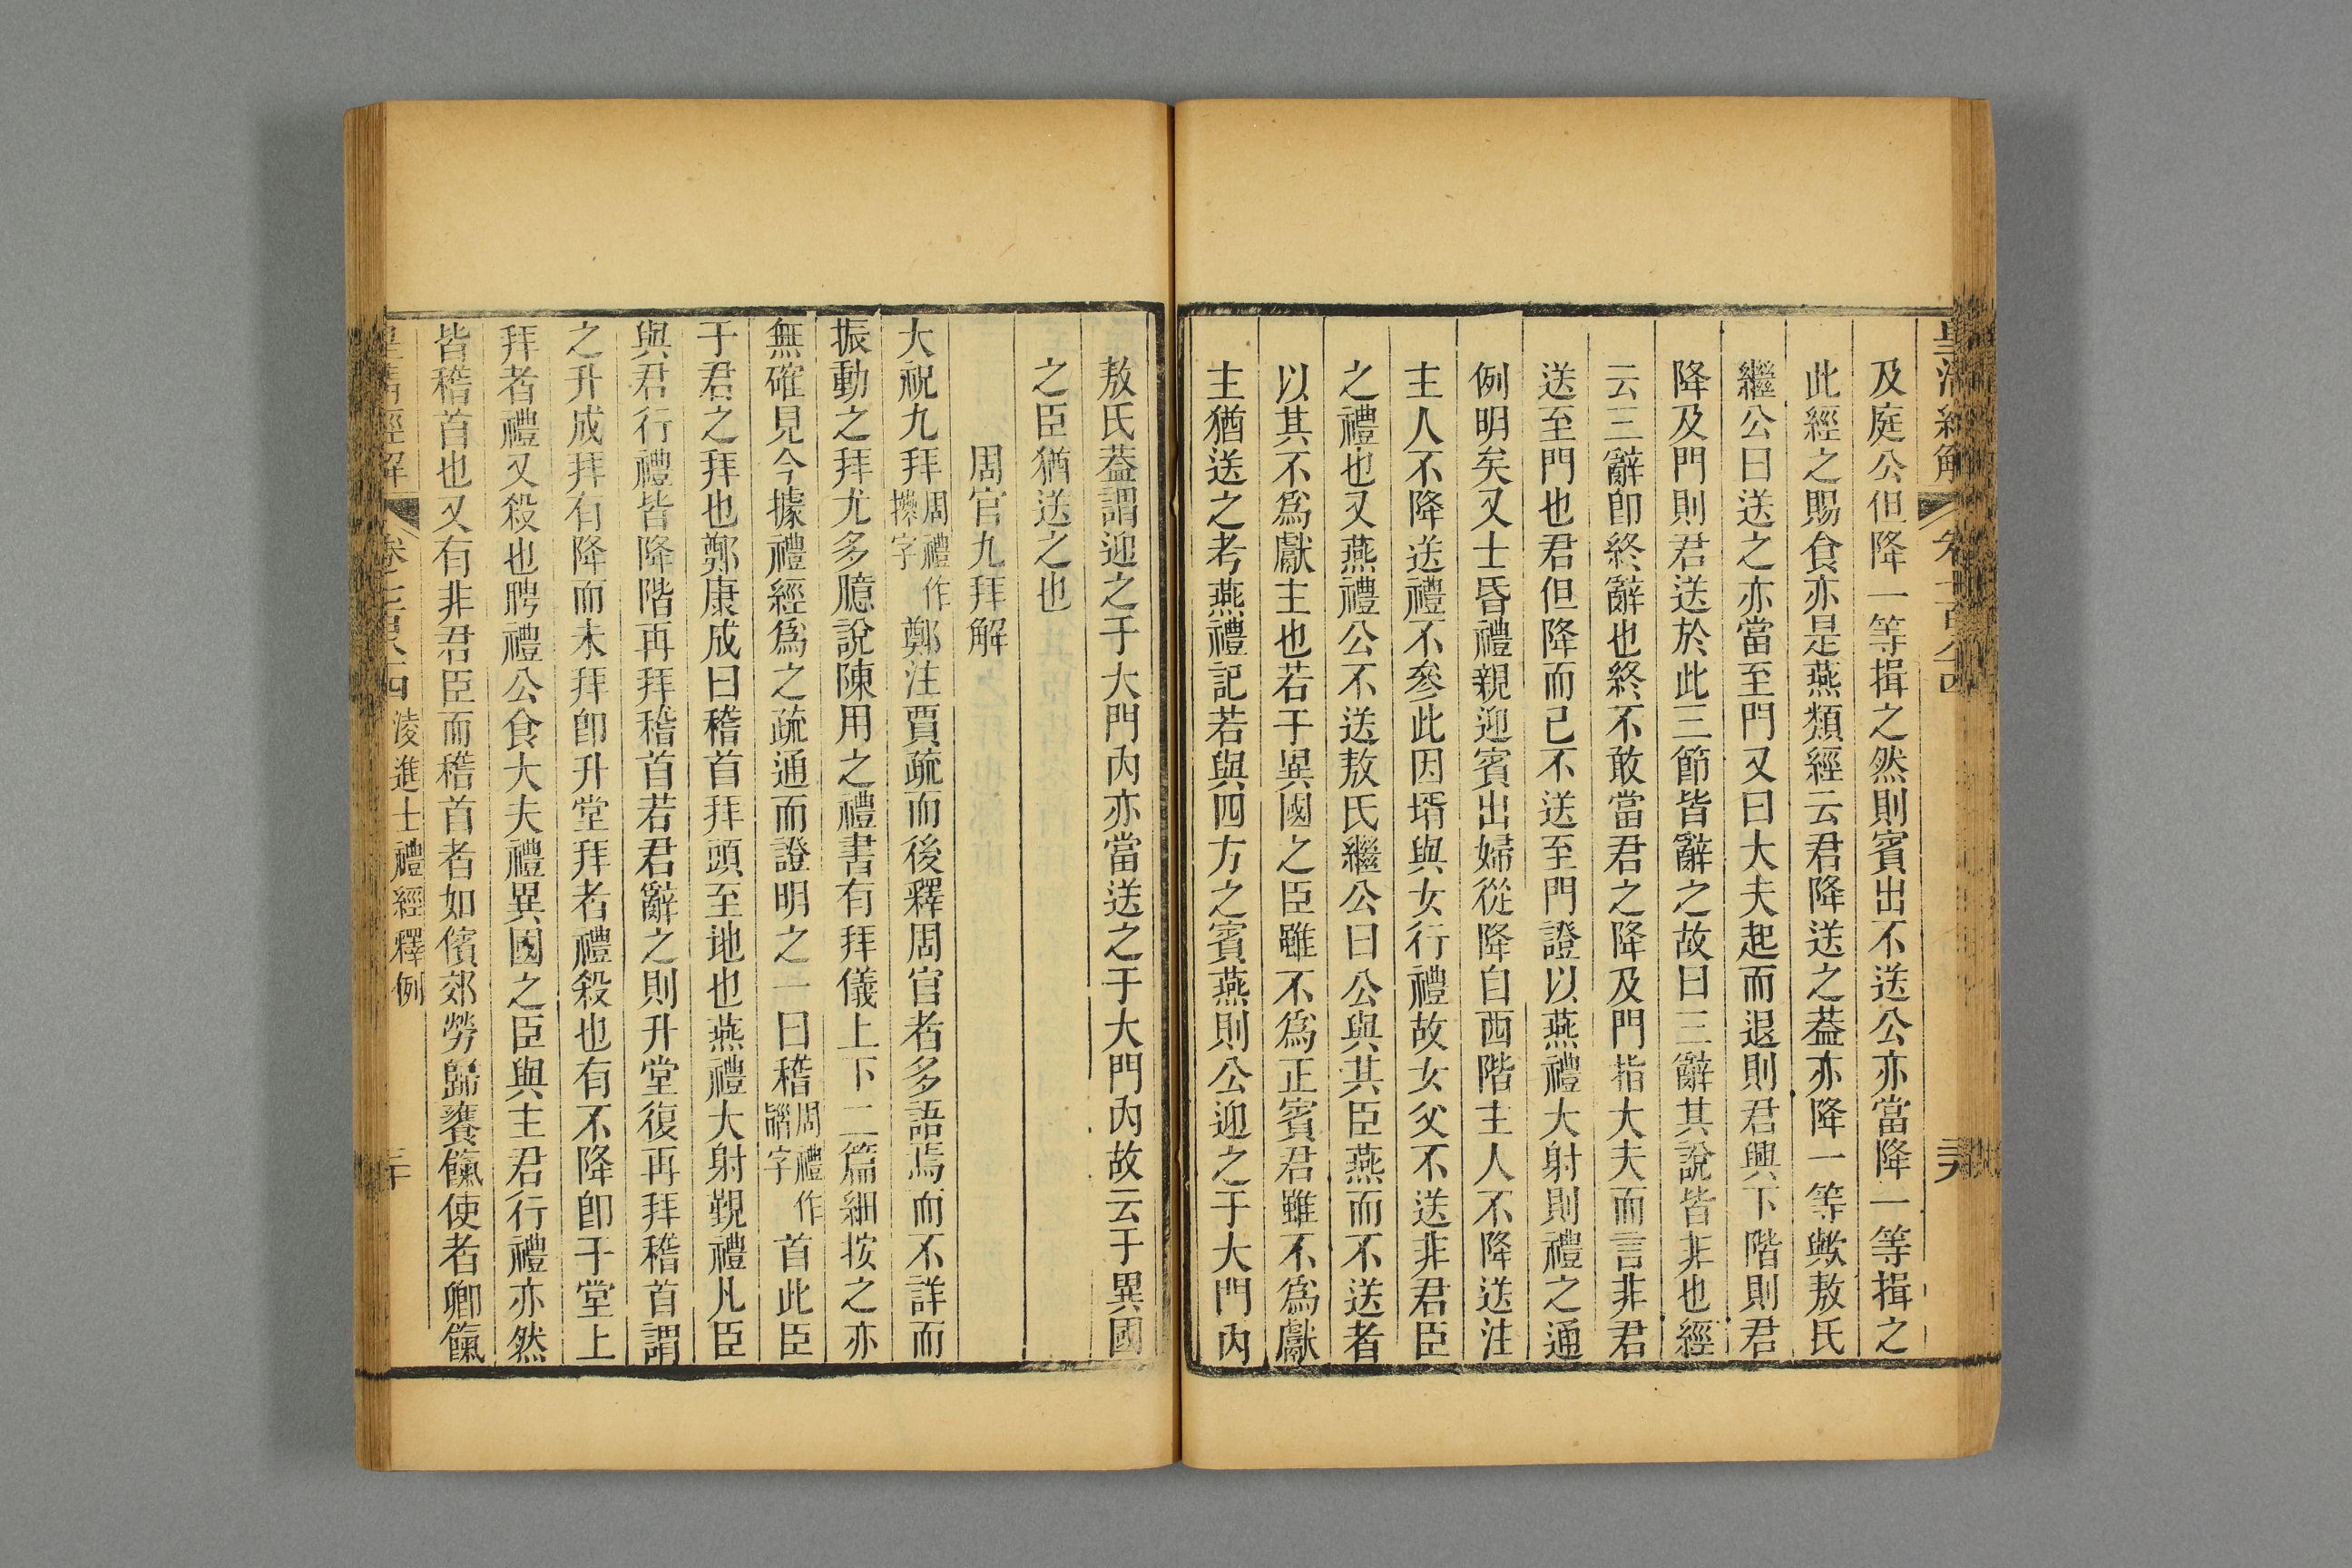 皇清經解
及庭公但降一等揖之然則賓出不送公亦當降一等揖之
此經之賜食亦是燕類經云君降送之葢亦降一等歟敖氏
繼公曰送之亦當至門又曰大夫起而退則君興下階則君
降及門則君送於此三節皆辭之故曰三辭其說皆非也經
云三辭卽終辭也終不敢當君之降及門指大夫而言非君
送至門也君但降而已不送至門證以燕禮大射則禮之通
例明矣又士昏禮親迎賓出婦從降自西階主人不降送注
主人不降送禮不參此因壻與女行禮故女父不送非君臣
之禮也又燕禮公不送敖氏繼公曰公與其臣燕而不送者
以其不爲獻主也若于異國之臣雖不爲正賓君雖不爲獻
主猶送之考燕禮記若與四方之賓燕則公迎之于大門內
敖氏葢謂迎之于大門內亦當送之于大門內故云于異國
之臣猶送之也
周官九拜解
大祝九拜周禮作𢷎字鄭注賈疏而後釋周官者多語焉而不詳而
振動之拜尤多臆說陳用之禮書有拜儀上下二篇細按之亦
無確見今據禮經爲之疏通而證明之一曰稽周禮作䭫字首此臣
于君之拜也鄭康成曰稽首拜頭至地也燕禮大射覲禮凡臣
與君行禮皆降階再拜稽首若君辭之則升堂復再拜稽首謂
之升成拜有降而未拜卽升堂拜者禮殺也有不降卽于堂上
拜者禮又殺也聘禮公食大夫禮異國之臣與主君行禮亦然
皆稽首也又有非君臣而稽首者如儐郊勞歸饔餼使者卿餼
皇清經解 卷七百八十四 淩進士禮經釋例 三十